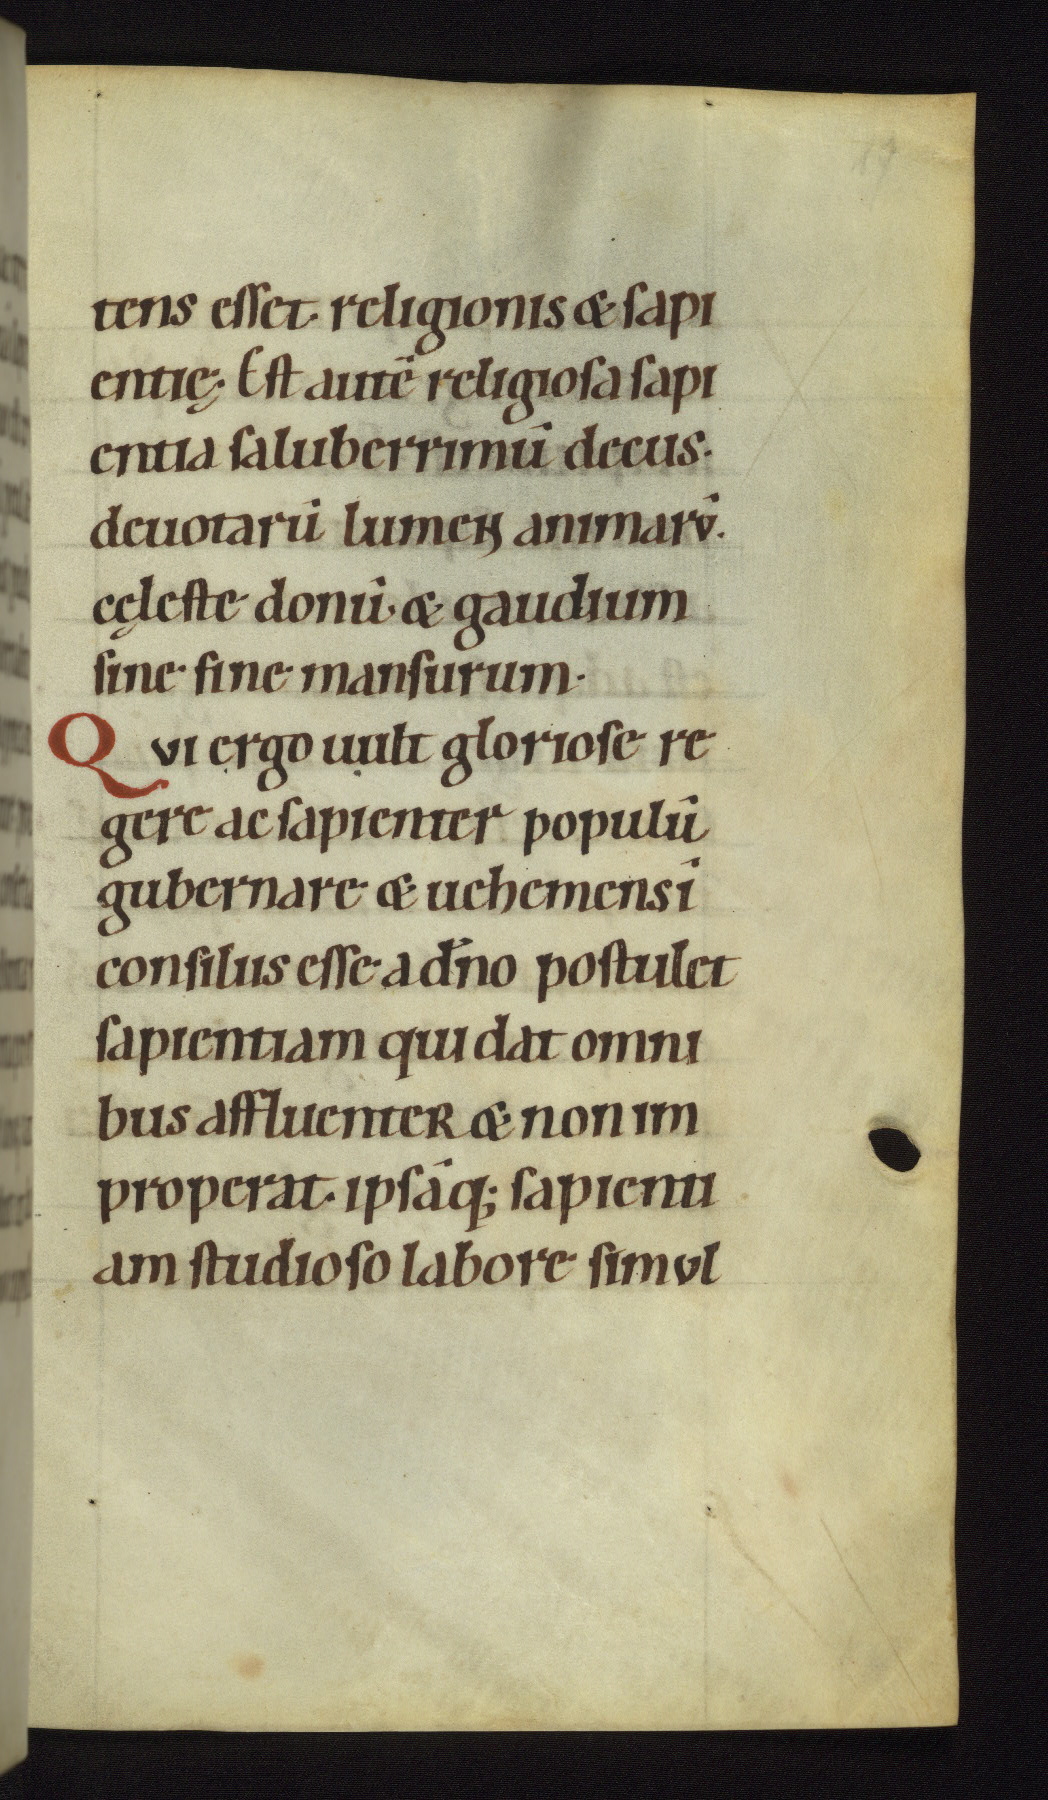 tens esset. religionis & sapi
entię. Est autē religiosa sapi
entia saluberrimū decus.
deuotarū lumen animarū.
cęleste donū. & gaudium
sine fine mansurum.
Qvi ergo uult gloriose re
gere ac sapienter populū
gubernare & uehemens i
consiliis esse. a dño postulet
sapientiam qui dat omni
bus affluenteR & non im
properat. ipsāq; sapienti
am studioso labore simvl